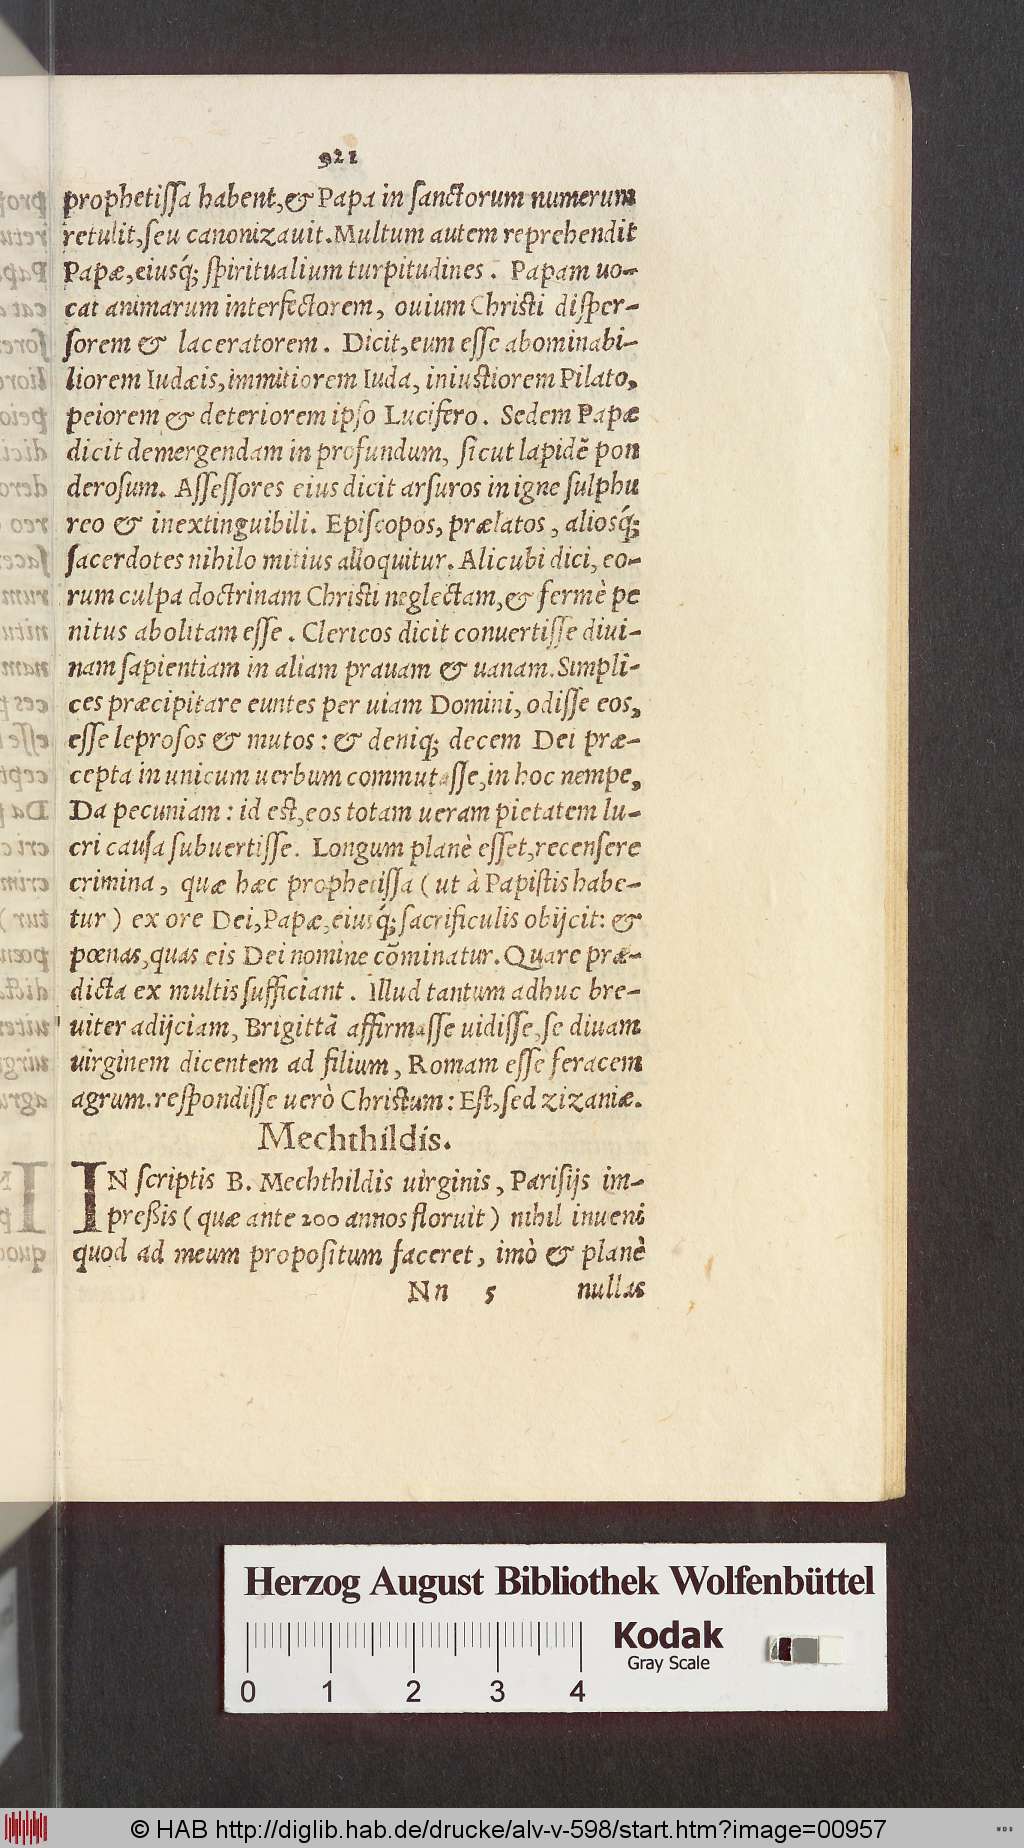 921
prophetiſſa habent, & Papa in ſanctorum numerum
retulit, ſeu canonizauit. Multum autem reprehendit
Papæ, eiusq́; ſpiritualium turpitudines. Papam uo-
cat animarum interfectorem, ouium Chriſti diſper-
ſorem & laceratorem. Dicit, eum eſſe abominabi-
liorem Iudæis, immitiorem Iuda, iniuſtiorem Pilato,
peiorem & deteriorem ipſo Lucifero. Sedem Papæ
dicit demergendam in profundum, ſicut lapidẽ pon
deroſum. Aſſeſſores eius dicit arſuros in igne ſulphu
reo & inextinguibili. Epiſcopos, prælatos, aliosq́;
ſacerdotes nihilo mitius alloquitur. Alicubi dici, eo-
rum culpa doctrinam Chriſti neglectam, & fermè pe
nitus abolitam eſſe. Clericos dicit conuertiſſe diui-
nam ſapientiam in aliam prauam & uanam. Simpli-
ces præcipitare euntes per uiam Domini, odiſſe eos,
eſſe leproſos & mutos: & deniq; decem Dei præ-
cepta in unicum uerbum commutaſſe, in hoc nempe,
Da pecuniam: id eſt, eos totam ueram pietatem lu-
cri cauſa ſubuertiſſe. Longum planè eſſet, recenſere
crimina, quæ hæc prophetiſſa (ut à Papiſtis habe-
tur) ex ore Dei, Papæ, eiusq́; ſacrificulis obijcit: &
pœnas, quas eis Dei nomine cōminatur. Quare præ-
dicta ex multis ſufficiant. Illud tantum adhuc bre-
uiter adijciam, Brigittā affirmaſſe uidiſſe, ſe diuam
uirginem dicentem ad filium, Romam eſſe feracem
agrum. reſpondiſſe uerò Chriſtum: Eſt, ſed zizaniæ.
Mechthildis.
IN ſcriptis B. Mechthildis uirginis, Pariſijs im-
preßis (quæ ante 200 annos floruit) nihil inueni
quod ad meum propoſitum faceret, imò & planè
Nn 5 nullas
Herzog August Bibliothek Wolfenbüttel
Kodak
Gray Scale
0 1 2 3 4
© HAB http://diglib.hab.de/drucke/alv-v-598/start.htm?image=00957